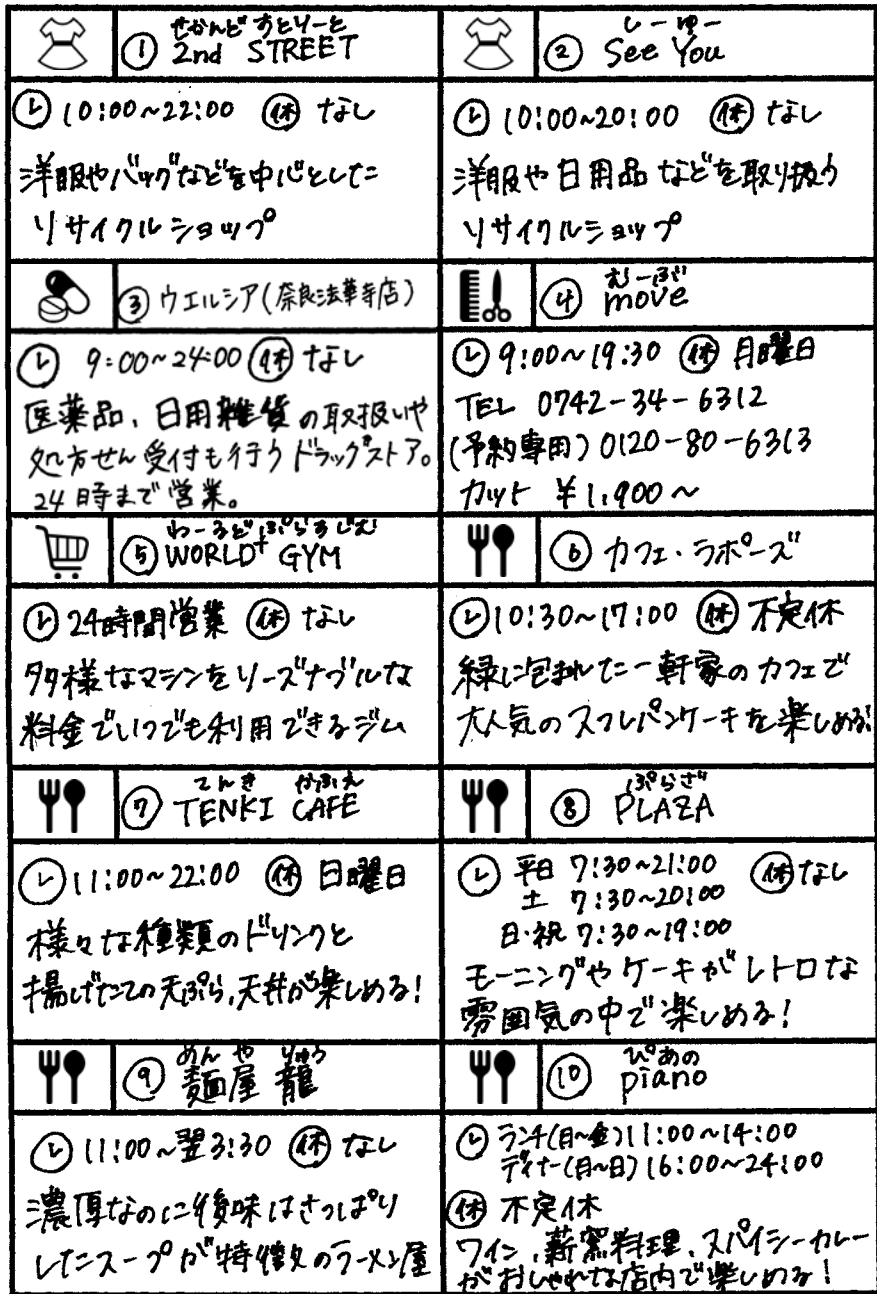 せかんど すとりーと
① 2nd STREET
10:00~22:00 休 なし
洋服やバッグなどを中心とした
リサイクルショップ
しーゆー
② See You
10:00~20:00 休 なし
洋服や日用品などを取り扱う
リサイクルショップ
③ ウエルシア(奈良法華寺店)
9:00~24:00 休 なし
医薬品、日用雑貨の取扱いや
処方せん受付も行うドラッグストア。
24時まで営業。
むーぶ
④ move
9:00~19:30 休 月曜日
TEL 0742-34-6312
(予約専用) 0120-80-6313
カット ¥1,900~
わーるどぷらすじむ
⑤ WORLD+ GYM
24時間営業 休 なし
多様なマシンをリーズナブルな
料金でいつでも利用できるジム
⑥ カフェ・ラポーズ
10:30~17:00 休 不定休
緑に包まれた一軒家のカフェで
大人気のスフレパンケーキを楽しめる!
てんき かふぇ
⑦ TENKI CAFE
11:00~22:00 休 日曜日
様々な種類のドリンクと
揚げたての天ぷら,天丼が楽しめる!
ぷらざ
⑧ PLAZA
平日 7:30~21:00 休 なし
土 7:30~20:00
日・祝 7:30~19:00
モーニングやケーキがレトロな
雰囲気の中で楽しめる!
めん や りゅう
⑨ 麺屋 龍
11:00~翌3:30 休 なし
濃厚なのに後味はさっぱり
したスープが特徴のラーメン屋
ぴあの
⑩ piano
ランチ(月~金)11:00~14:00
ディナー(月~日)16:00~24:00
休 不定休
ワイン、薪窯料理、スパイシーカレー
がおしゃれな店内で楽しめる!